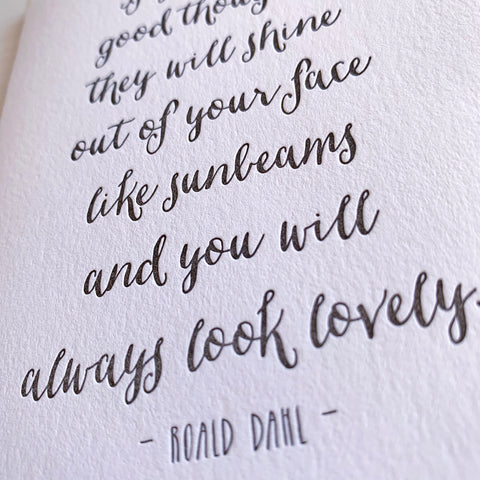 good thoug
they will shine
out of your face
like sunbeams
and you will
always look lovely.
- ROALD DAHL -